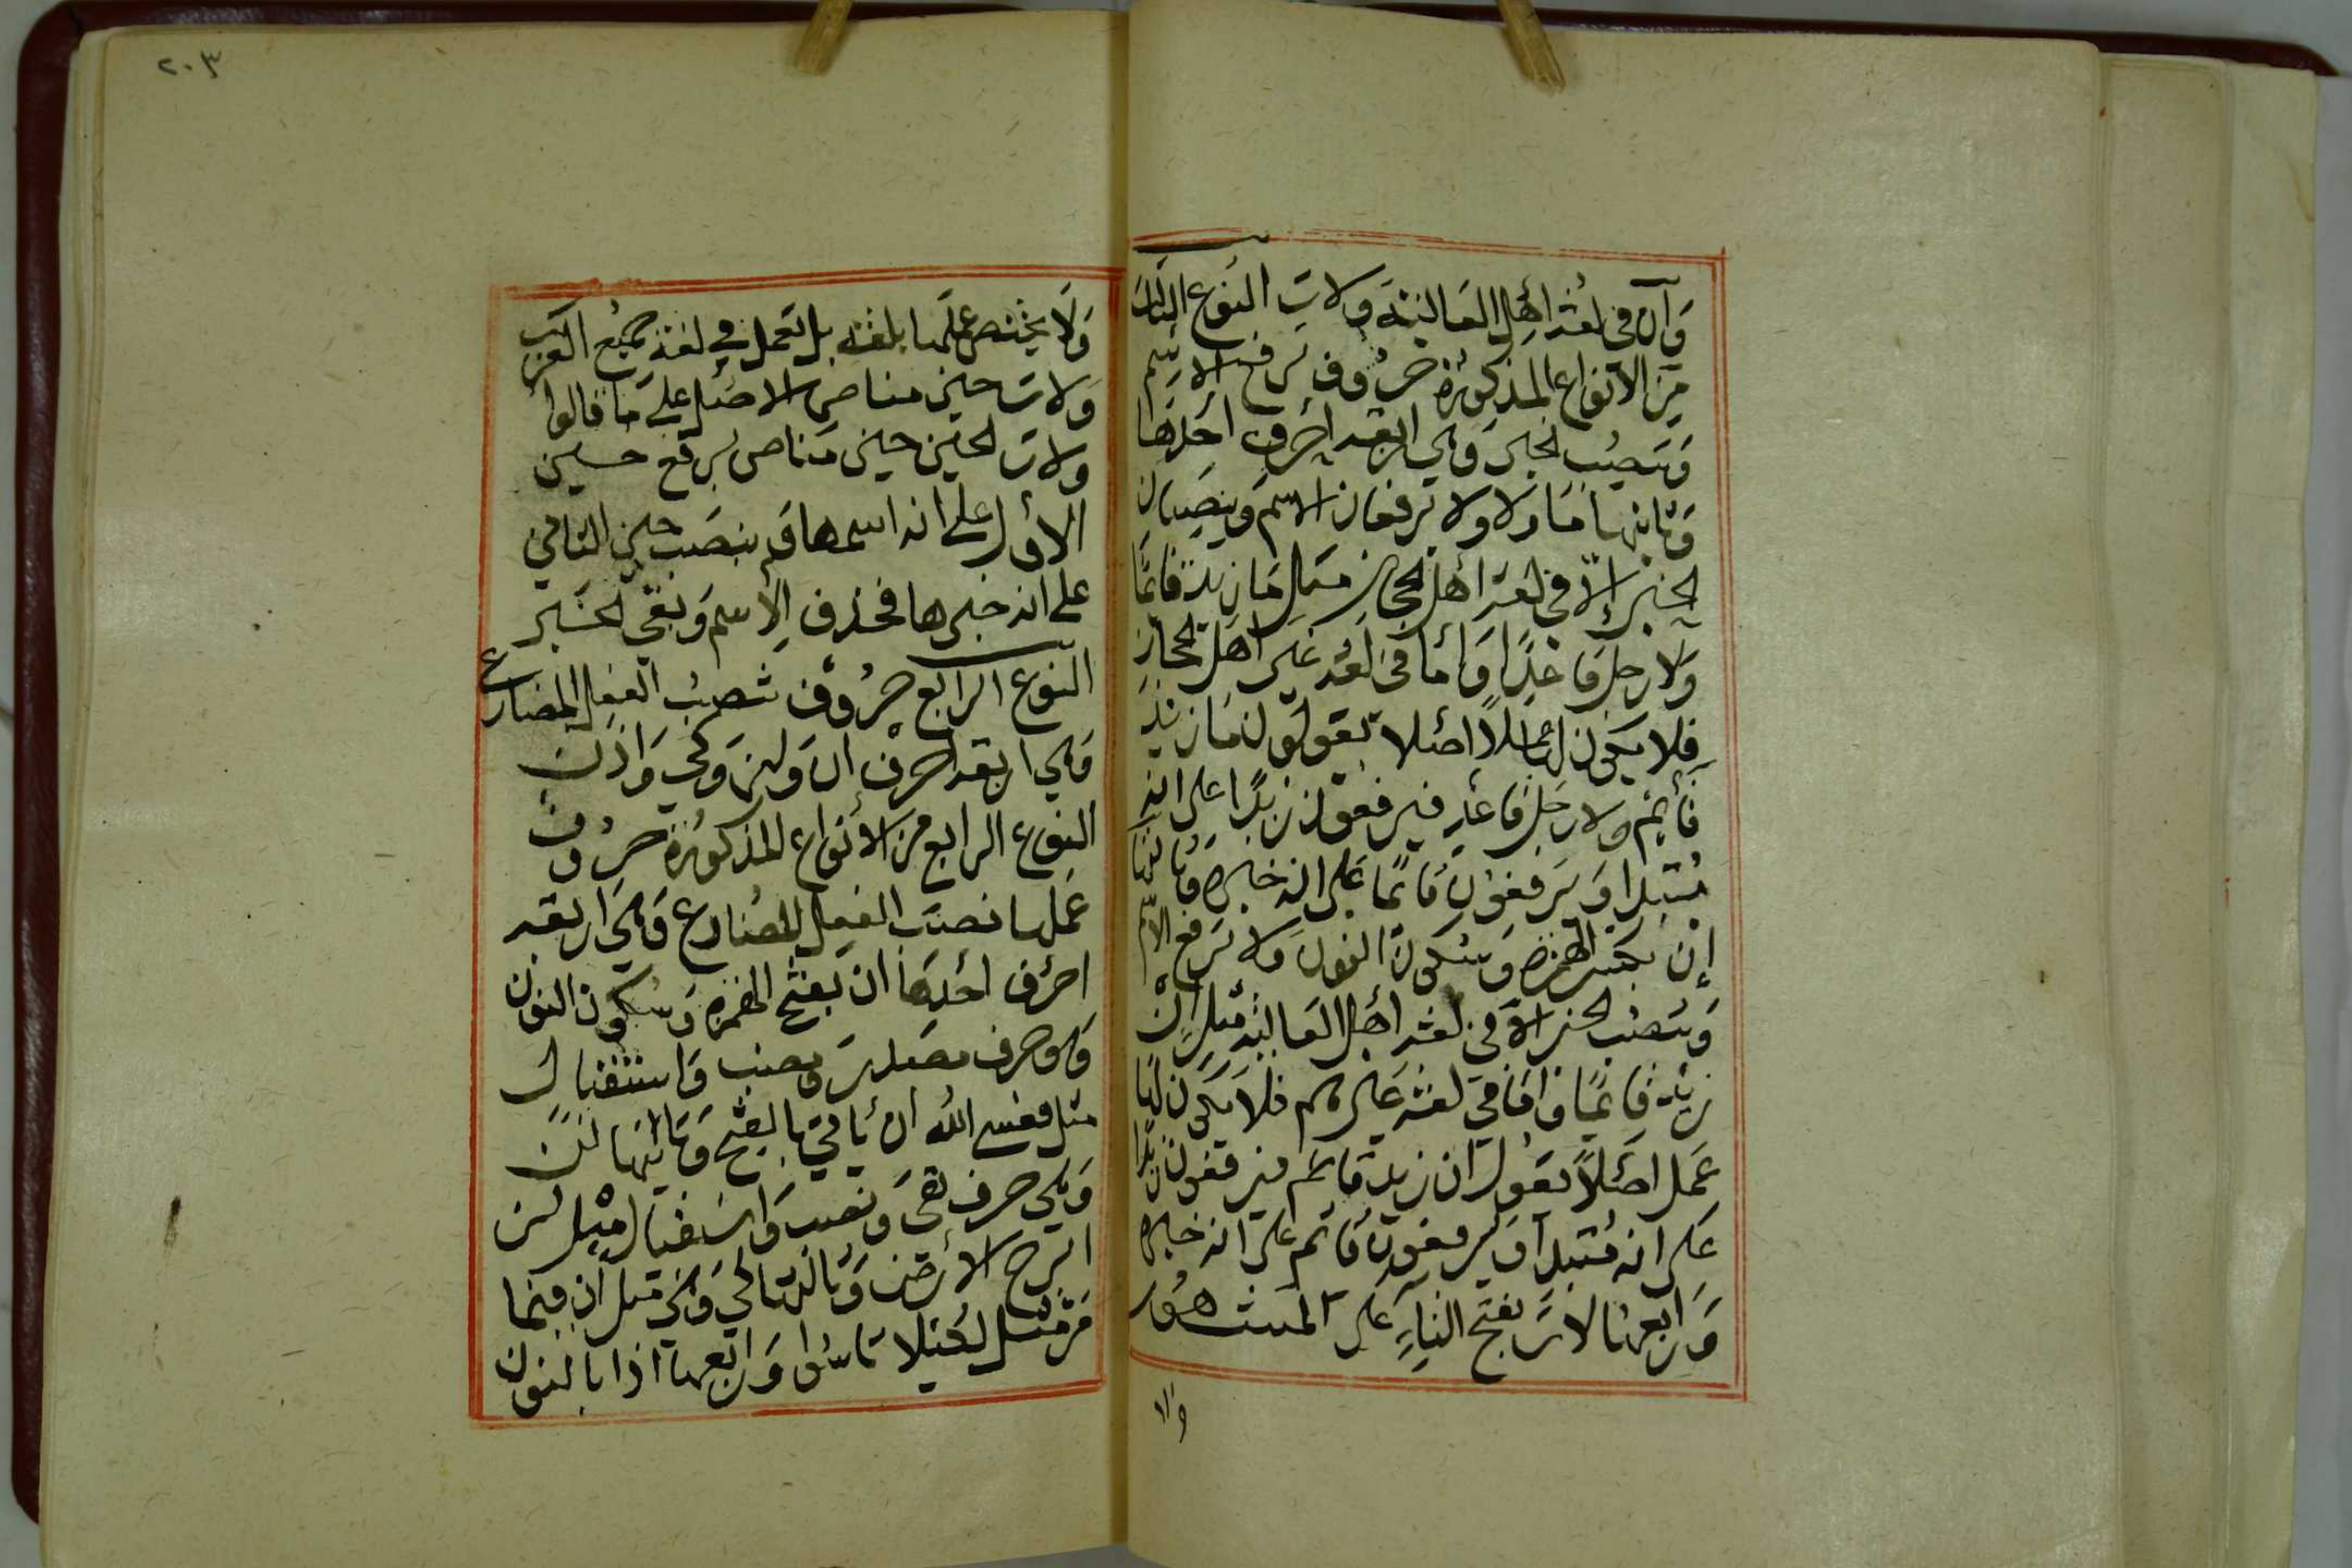 وَاَن فى لغة أهل العالية ولات النوع الثالث
من الانواع المذكورة حروف ترفع الاسم
وتنصب الخبر وهى اربعة أحرف أحدها
وثانيها ما ولا ولا ترفعان الاسم وينصبان
الخبر الّا فى لغة أهل الحجاز مثل ما زيد قائمًا
ولا رجل قاعدًا وامّا فى لغة غير اهل الحجاز
فلا يكون لعملا اصلا بقولون ما زيد
قائم ولا رجل قاعد فيرفعون زيدًا على انه
مبتدا ويرفعون قائمًا على انه خبره وثالثها
إن بكسر الهمزة وسكون النون ولا ترفع الاسم
وتنصب الخبر الّا فى لغة أهل العالية مثل إن
زيد قائمًا وامّا فى لغة غيرهم فلا يكون لها
عمل اصلًا بقول ان زيد قائم فيرفعون زيدًا
على انه مبتدأ ويرفعون قائم على انه خبره
ورابعها لات بفتح التاء على المشهور
ولا
٢٠٣
ولا يختص عملها بلغة بل تعمل فى لغة جميع العرب
ولات حين مناص الاصل على ما قالوا
ولات الحين حين مناص برفع حين
الأول على انه اسمها وبنصب حين الثانى
على انه خبرها فحذف الاسم وبقى الخبر
النوع الرابع حروف تنصب الفعل المضارع
وهى اربعة احرف ان ولن وكى واذن
النوع الرابع من الأنواع المذكورة حروف
عملها نصب الفعل المضارع وهى اربعة
احرف أحدها ان بفتح الهمزة وسكون النون
وهو حرف مصدر ونصب واستقبال
مثل فعسى الله ان يأتى بالفتح وثانيها لن
وهى حرف نفى ونصب واستقبال مثل لن
ابرح الأرض وثالثها كى وهى مثل ان فيما
مرّ مثل لكيلا تاسوا ورابعها اذا بالنون